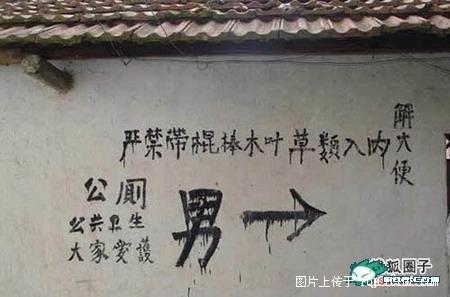 严禁带棍棒木叶草類入内
解大便
公厕
公共卫生
大家爱護
男
图片上传于
搜狐圈子